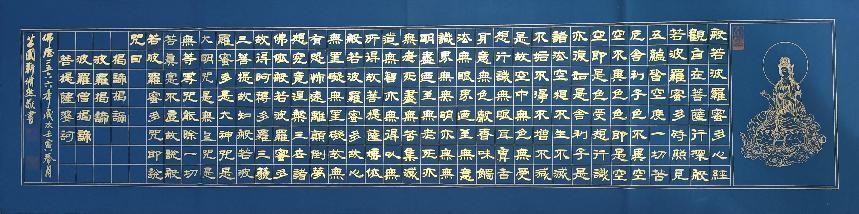 般若波羅蜜多心經
觀自在菩薩行深般
若波羅蜜多時照見
五蘊皆空度一切苦
厄舍利子色不異空
空不異色色即是空
空即是色受想行識
亦復如是舍利子是
諸法空相不生不滅
不垢不淨不增不減
是故空中無色無受
想行識無眼耳鼻舌
身意無色聲香味觸
法無眼界乃至無意
識界無無明亦無無
明盡乃至無老死亦
無老死盡無苦集滅
道無智亦無得以無
所得故菩提薩埵依
般若波羅蜜多故心
無罣礙無罣礙故無
有恐怖遠離顛倒夢
想究竟涅槃三世諸
佛依般若波羅蜜多
故得阿耨多羅三藐
三菩提故知般若波
羅蜜多是大神咒是
大明咒是無上咒是
無等等咒能除一切
苦真實不虛故說般
若波羅蜜多咒即說
咒曰
揭諦揭諦
波羅揭諦
波羅僧揭諦
菩提薩婆訶
佛歷二五六六年歲次壬寅月
敬書